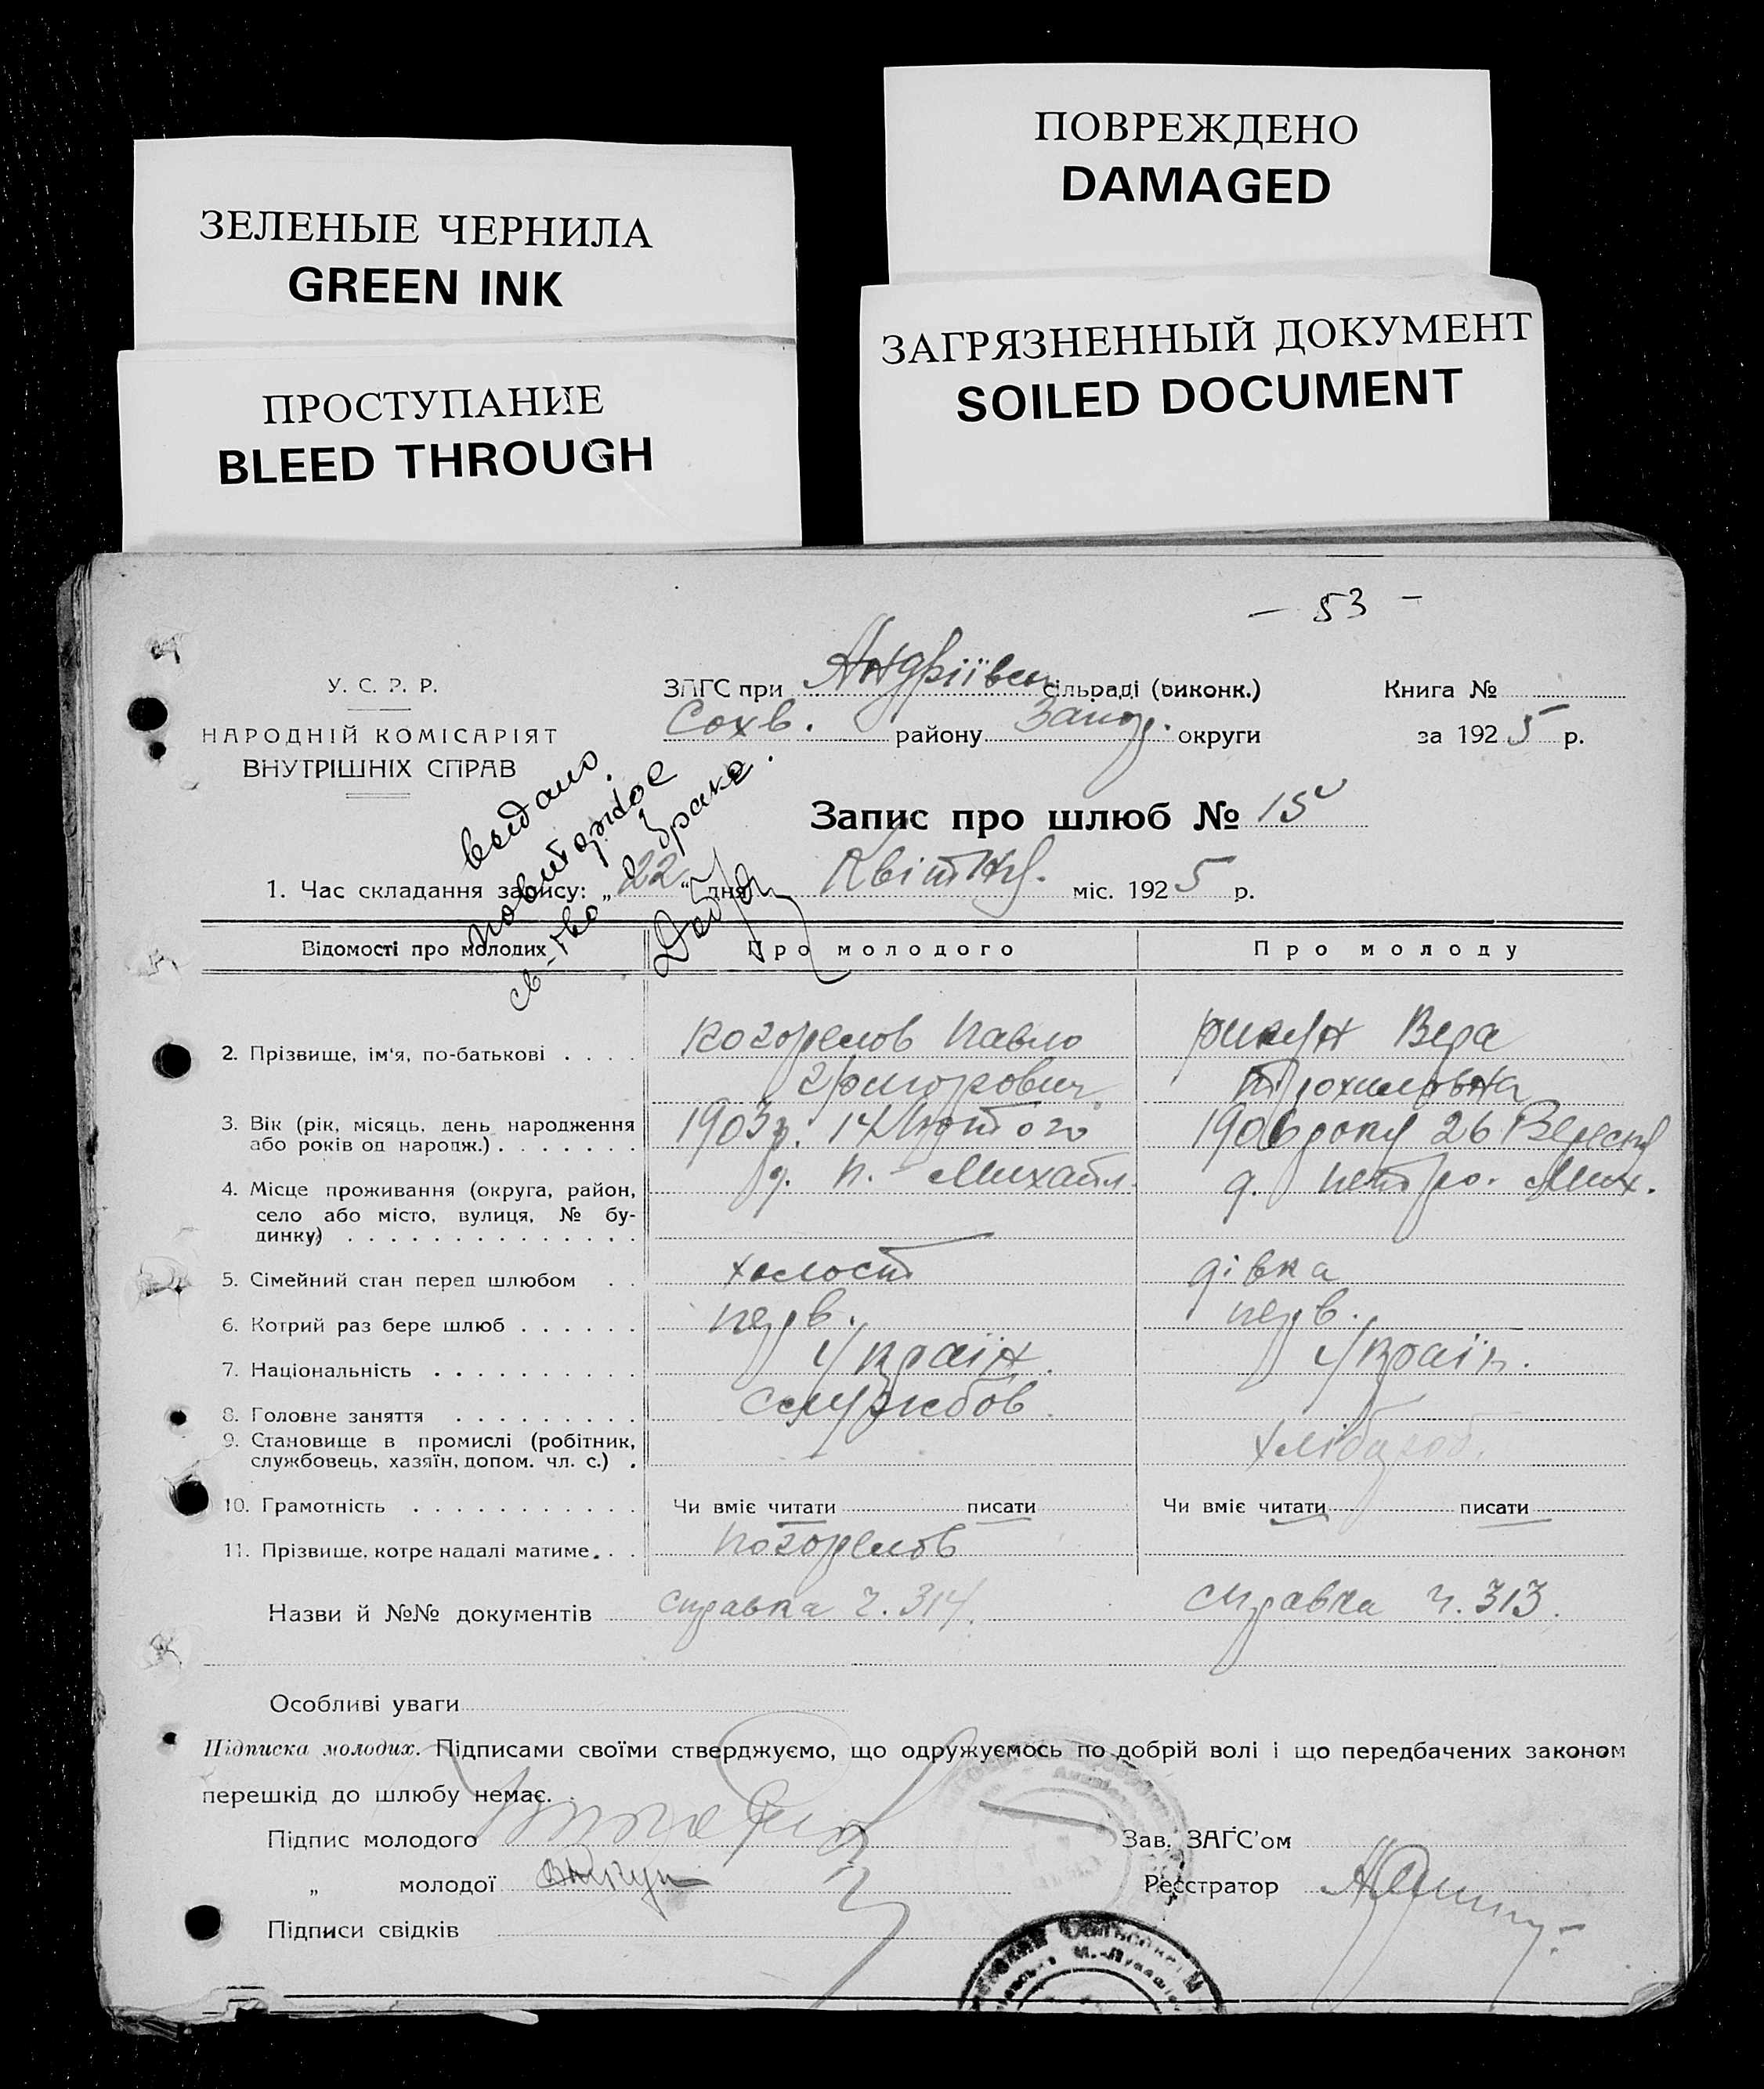 ПОВРЕЖДЕНО
DAMAGED
ЗЕЛЕНЫЕ ЧЕРНИЛА
GREEN INK
ЗАГРЯЗНЕННЫЙ ДОКУМЕНТ
SOILED DOCUMENT
ПРОСТУПАНИЕ
BLEED THROUGH
— 53 —
У. С. Р. Р.
НАРОДНІЙ КОМІСАРІЯТ
ВНУТРІШНІХ СПРАВ
ЗАГС при Андріївск сільраді (виконк.)
Книга №
Сохв. району Запор. округи
за 1925 р.
выдано
повторное
св-тво о браке.
Запис про шлюб № 15
1. Час складання запису: „22" дня Квітня. міс. 1925 р.
Відомості про молодих Про молодого Про молоду
2. Прізвище, ім'я, по-батькові . . . . Погорелов Павло Рикун Вера
Григорович. Трохимовна
3. Вік (рік, місяць, день народження 1903 р. 14 Лютого 1906 року 26 Вересня
або років од народж.) . . . . . . .
4. Місце проживання (округа, район, д. П. Михайл. д. Петро. Мих.
село або місто, вулиця, № бу-
динку) . . . . . . . . . . . . . .
5. Сімейний стан перед шлюбом . . холост дівка
6. Котрий раз бере шлюб . . . . . . перв. перв.
7. Національність . . . . . . . . . . Україн. Україн.
8. Головне заняття . . . . . . . . . Службов.
9. Становище в промислі (робітник, хлібороб.
службовець, хазяїн, допом. чл. с.) .
10. Грамотність . . . . . . . . . . . Чи вміє читати писати Чи вміє читати писати
11. Прізвище, котре надалі матиме. . . Погорелов
Назви й №№ документів справка ч. 314. справка ч. 313.
Особливі уваги
Підписка молодих. Підписами своїми стверджуємо, що одружуємось по добрій волі і що передбачених законом
перешкід до шлюбу немає.
Підпис молодого
Зав. ЗАГС'ом
„ молодої
Реєстратор
Підписи свідків